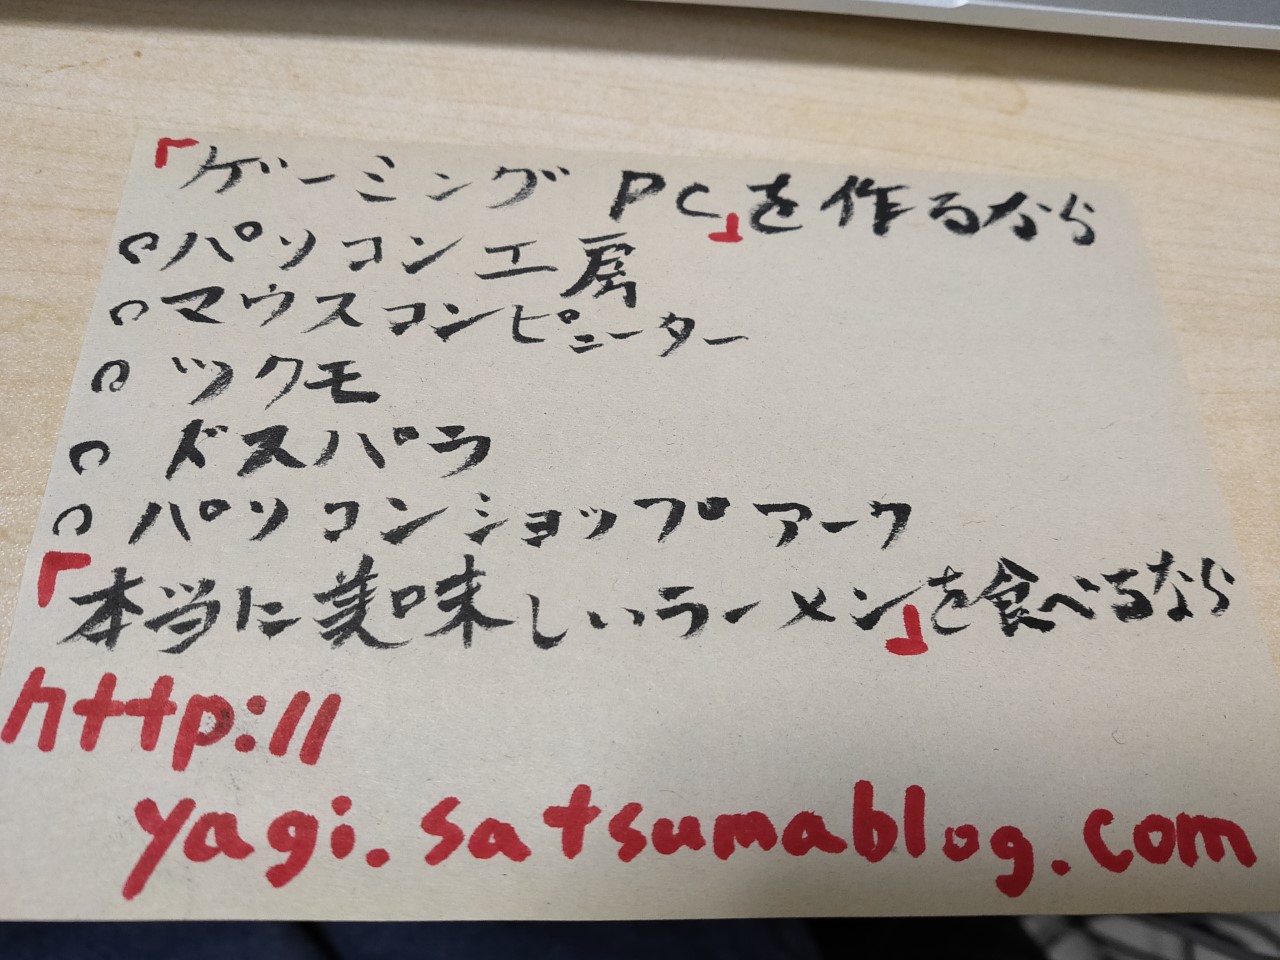 「ゲーミングPC」を作るなら
○パソコン工房
○マウスコンピューター
○ツクモ
○ドスパラ
○パソコンショップアーク
「本当に美味しいラーメン」を食べるなら
http://
yagi.satsumablog.com